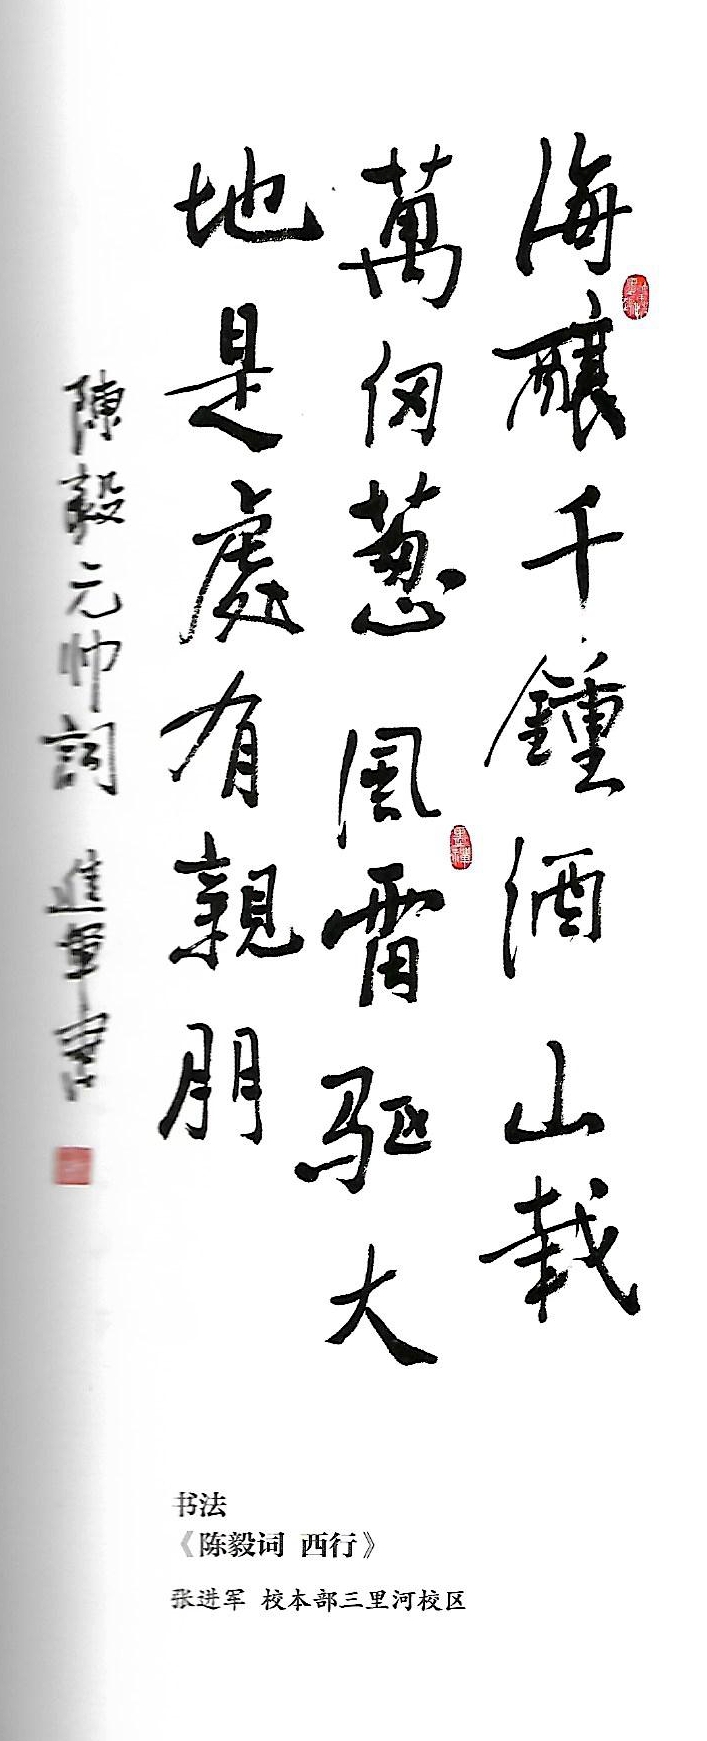 海釀千鍾酒山載
萬仞葱風雷驱大
地是處有親朋
陳毅元帅詞 進軍書
书法
《陈毅词 西行》
张进军 校本部三里河校区